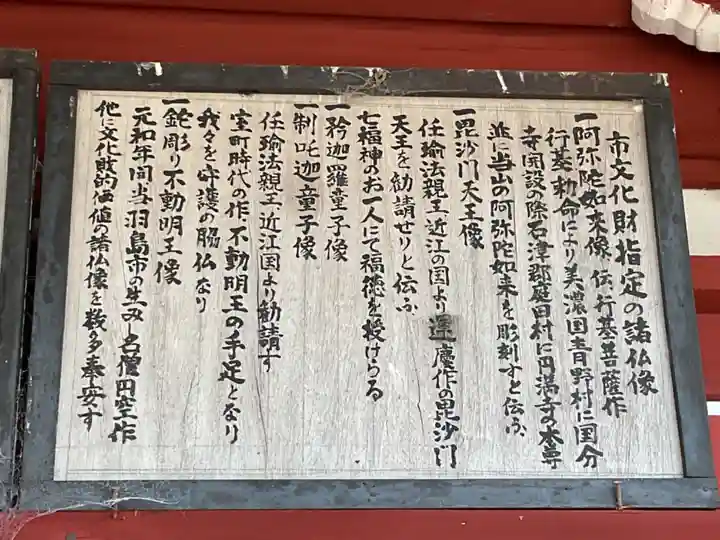 市文化財指定の諸仏像
一阿弥陀如来像 伝行基菩薩作
行基勅命により美濃国青野村に国分
寺開設の際石津郡庭田村に円満寺の本尊
並に当山の阿弥陀如来を彫刻すと伝ふ
一毘沙門天王像
任瑜法親王近江の国より運慶作の毘沙門
天王を勧請せりと伝ふ
七福神のお一人にて福徳を授けらる
一矜迦羅童子像
一制吒迦童子像
任瑜法親王近江国より勧請す
室町時代の作不動明王の手足となり
我々を守護の脇仏なり
一鉈彫り不動明王像
元和年間当羽島市の生みし名僧円空作
他に文化財的価値の諸仏像を数多奉安す